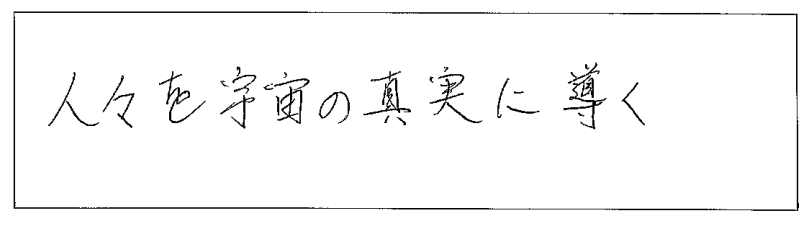 人々を宇宙の真実に導く